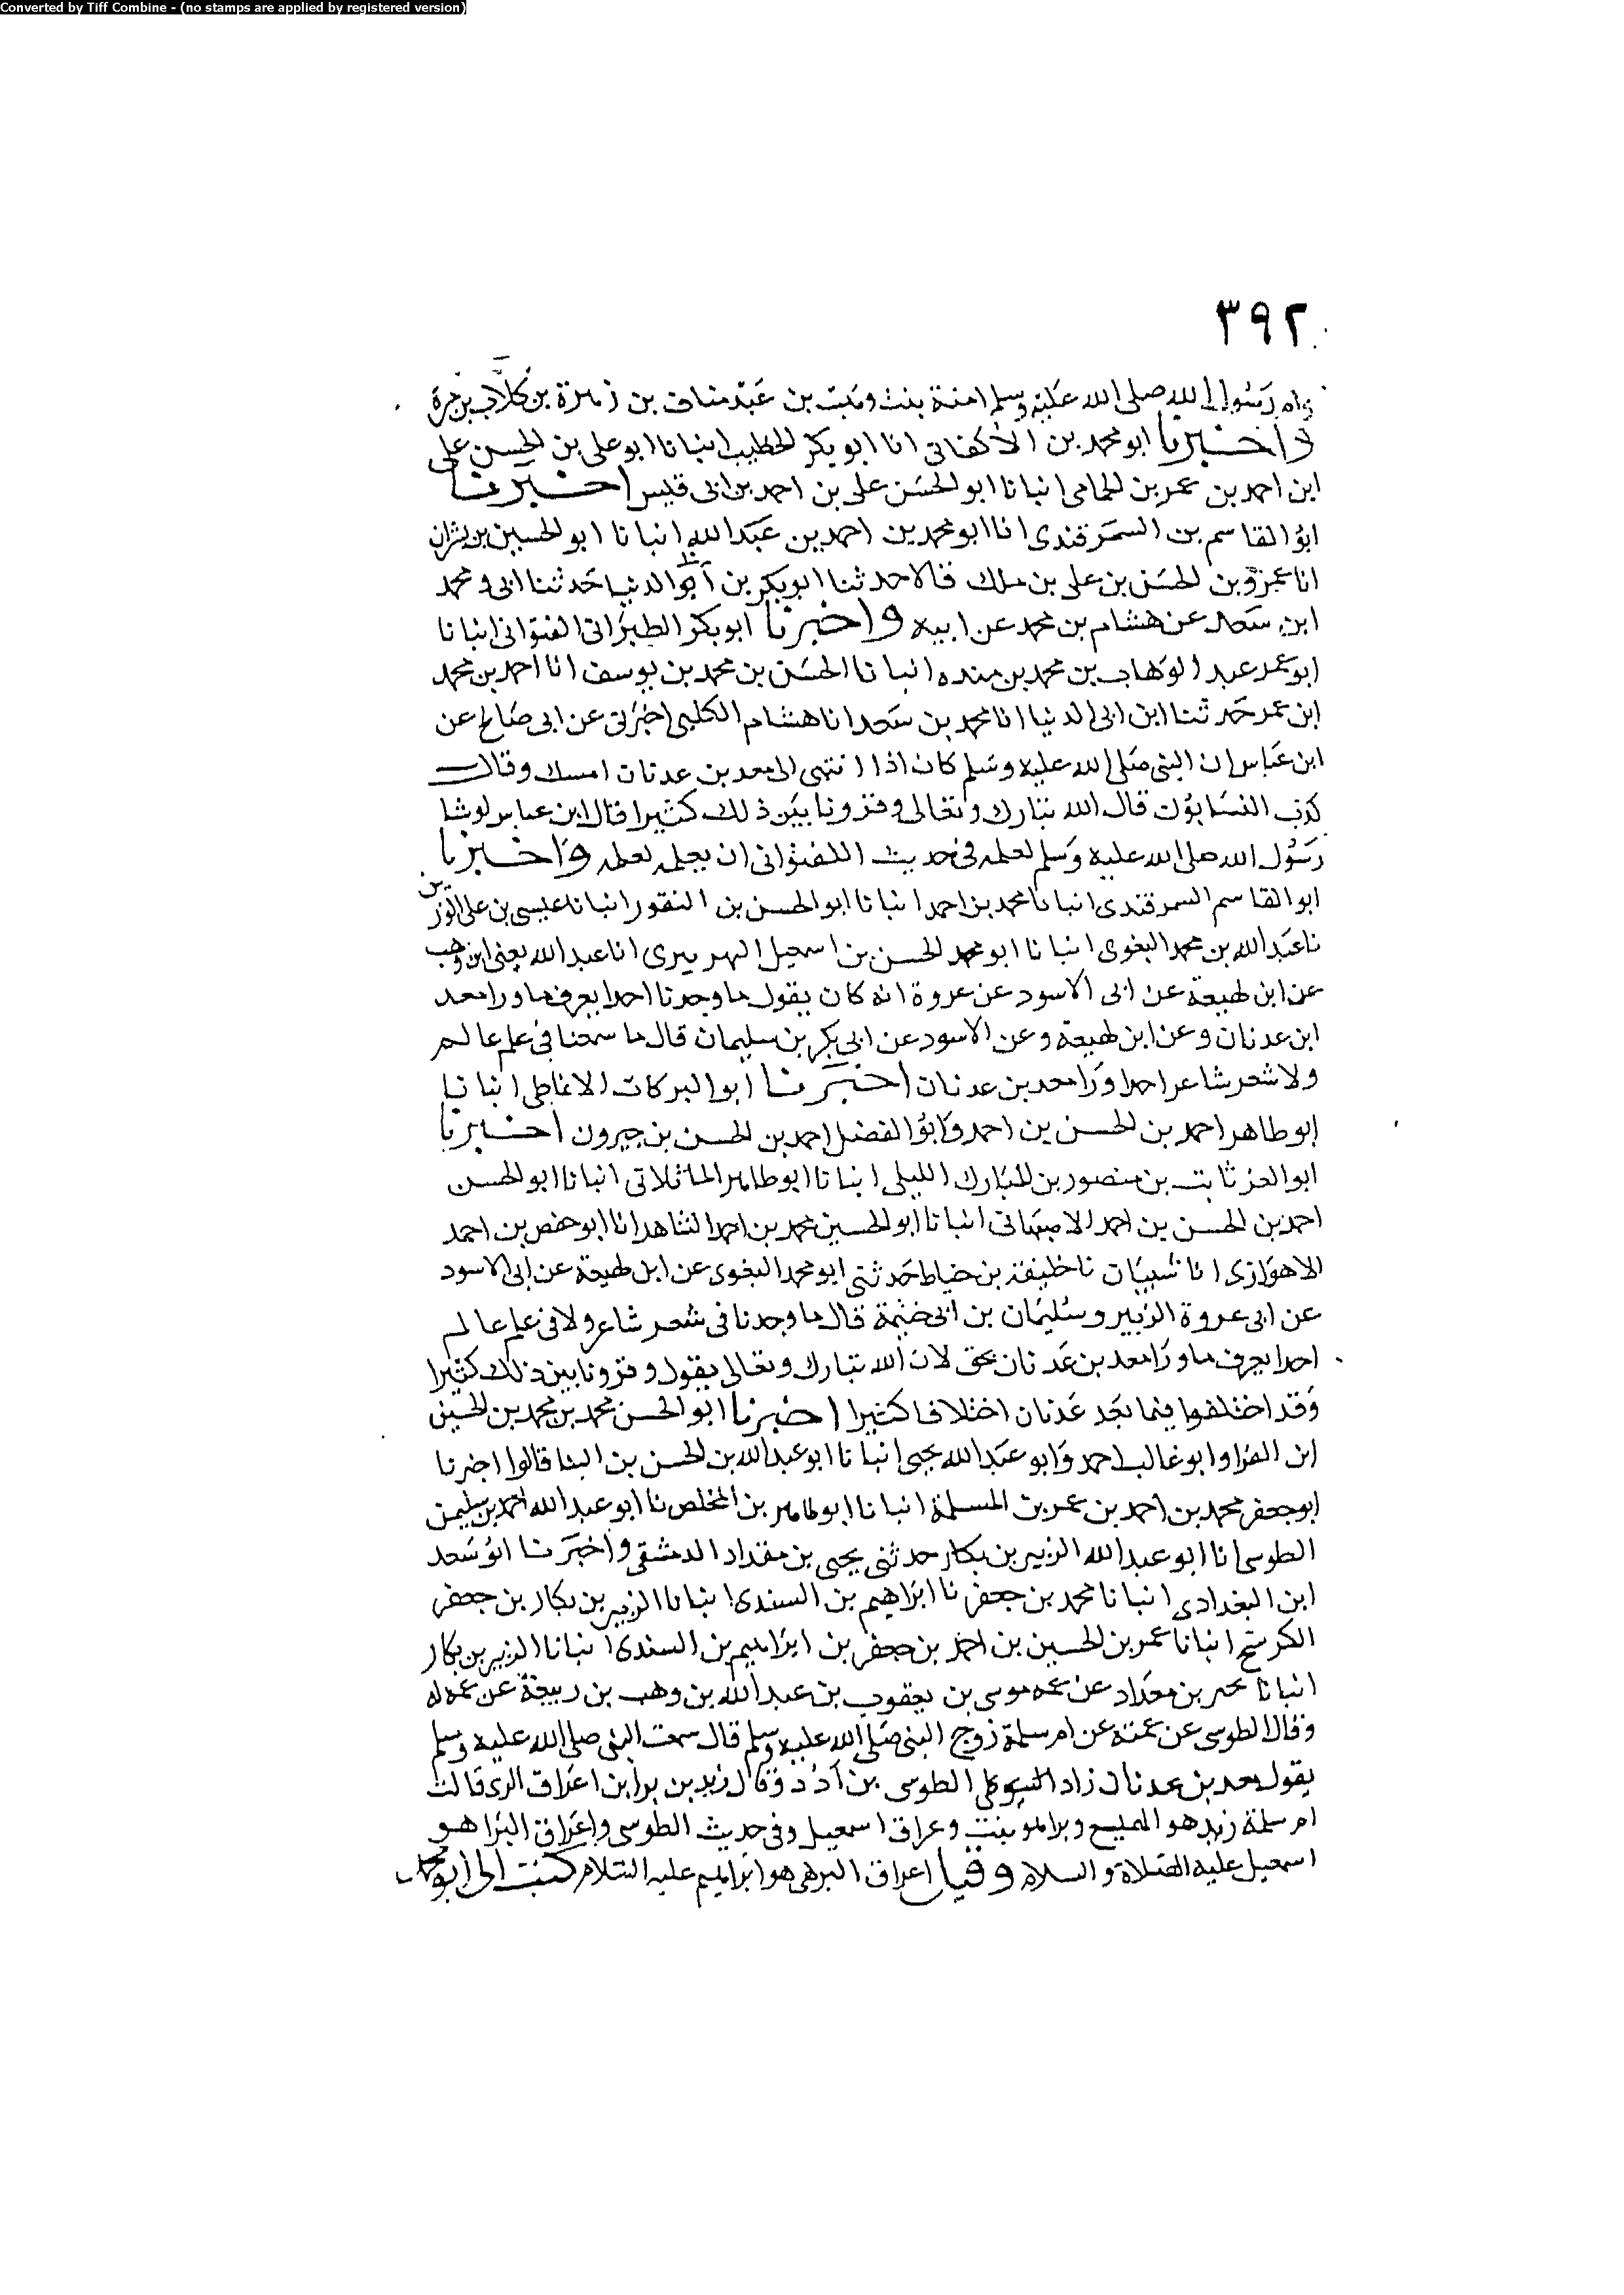 Converted by Tiff Combine - (no stamps are applied by registered version)
٣٩٢
وام رسول الله صلى الله عليه وسلم امنة بنت وهب بن عبد مناف بن زهرة بن كلاب بن مرة
واخبرنا ابو محمد بن الاكفانى انا ابو بكر الخطيب انبانا ابو على بن الحسن على
ابن احمد بن عمر بن الحمامى انبانا ابو الحسن على بن احمد بن ابى قيس اخبرنا
ابو القاسم بن السمرقندى انا ابو محمد بن احمد بن عبد الله انبانا ابو الحسين بن بشران
انا عمرو بن الحسن بن على بن ملك قالا حدثنا ابو بكر بن ابو الدنيا حدثنا ابى و محمد
ابن سعد عن هشام بن محمد عن ابيه واخبرنا ابو بكر الطبرانى الفتوانى انبانا
ابو عمر عبد الوهاب بن محمد بن منده انبانا الحسن بن محمد بن يوسف انا احمد بن محمد
ابن عمر حدثنا ابن ابى الدنيا انا محمد بن سعد انا هشام الكلبى اخبرنى عن ابى صالح عن
ابن عباس ان النبى صلى الله عليه وسلم كان اذا انتهى الى معد بن عدنان امسك وقال
كذب النسابون قال الله تبارك وتعالى وقرونا بين ذلك كثيرا قال ابن عباس لو شا
رسول الله صلى الله عليه وسلم لعلمه فى حديث اللفتوانى ان يعلمه لعلمه واخبرنا
ابو القاسم السمرقندى انبانا محمد بن احمد انبانا ابو الحسن بن النقور انبانا عيسى بن على الوزير
نا عبد الله بن محمد البغوى انبانا ابو محمد الحسن بن اسمعيل النهرسيرى انا عبد الله يعنى ابن وهب
عن ابن لهيعة عن ابى الاسود عن عروة انه كان يقول ما وجدنا احدا يعرف ما ورا معد
ابن عدنان وعن ابن لهيعة وعن الاسود عن ابى بكر بن سليمان قال ما سمعنا فى علم عالم
ولا شعر شاعر احدا ورا معد بن عدنان اخبرنا ابو البركات الانماطى انبانا
ابو طاهر احمد بن الحسن بن احمد وابو الفضل احمد بن الحسن بن جيرون اخبرنا
ابو العز ثابت بن منصور بن المبارك الليلى انبانا ابو طاهر الماثلاتى انبانا ابو الحسن
احمد بن الحسن بن احمد الاصبهانى انبانا ابو الحسين محمد بن احمد الشاهد انا ابو حفص بن احمد
الاهوازى انا شبيبان نا خليفة بن خياط حدثنى ابو محمد البغوى عن ابن لهيعة عن ابى الاسود
عن ابى عروة الزبير وسليمان بن ابى خثيمة قال ما وجدنا فى شعر شاعر ولا فى علم عالم
احدا يعرف ما ورا معد بن عدنان بحق لان الله تبارك وتعالى يقول وقرونا بين ذلك كثيرا
وقد اختلفوا فيما بعد عدنان اختلافا كثيرا اخبرنا ابو الحسن محمد بن محمد بن الحسين
ابن الفرا وابو غالب احمد وابو عبد الله يحيى انبانا ابو عبد الله بن الحسن بن البنا قالوا اخبرنا
ابو جعفر محمد بن احمد بن عمر بن المسلمة انبانا ابو طاهر بن المخلص نا ابو عبد الله احمد بن سليمن
الطوسى انا ابو عبد الله الزبير بن بكار حدثنى يحيى بن مقداد الدمشقى واخبرنا ابو سعد
ابن البغدادى انبانا محمد بن جعفر نا ابراهيم بن السندى انبانا الزبير بن بكار بن جعفر
الكرسح انبانا عمر بن الحسين بن احمد بن جعفر بن ابراهيم بن السندى انبانا الزبير بن بكار
انبانا بن معداد عن عمه موسى بن يعقوب بن عبد الله بن وهب بن ربيعة عن عمه له
وقال الطوسى عن عمته عن ام سلمة زوج النبى صلى الله عليه وسلم قال سمعت النبى صلى الله عليه وسلم
يقول معد بن عدنان زاد الطوسى بن ادد وقال زيد بن برا بن اعراق الرى قالت
ام سلمة زيد هو الهميسع وبرا بنت وعراق اسمعيل وفى حديث الطوسى واعراق البرا هو
اسمعيل عليه الصلاة والسلام وقيل اعراق البرهى هو ابراهيم عليه السلام كتب الى ابو محمد